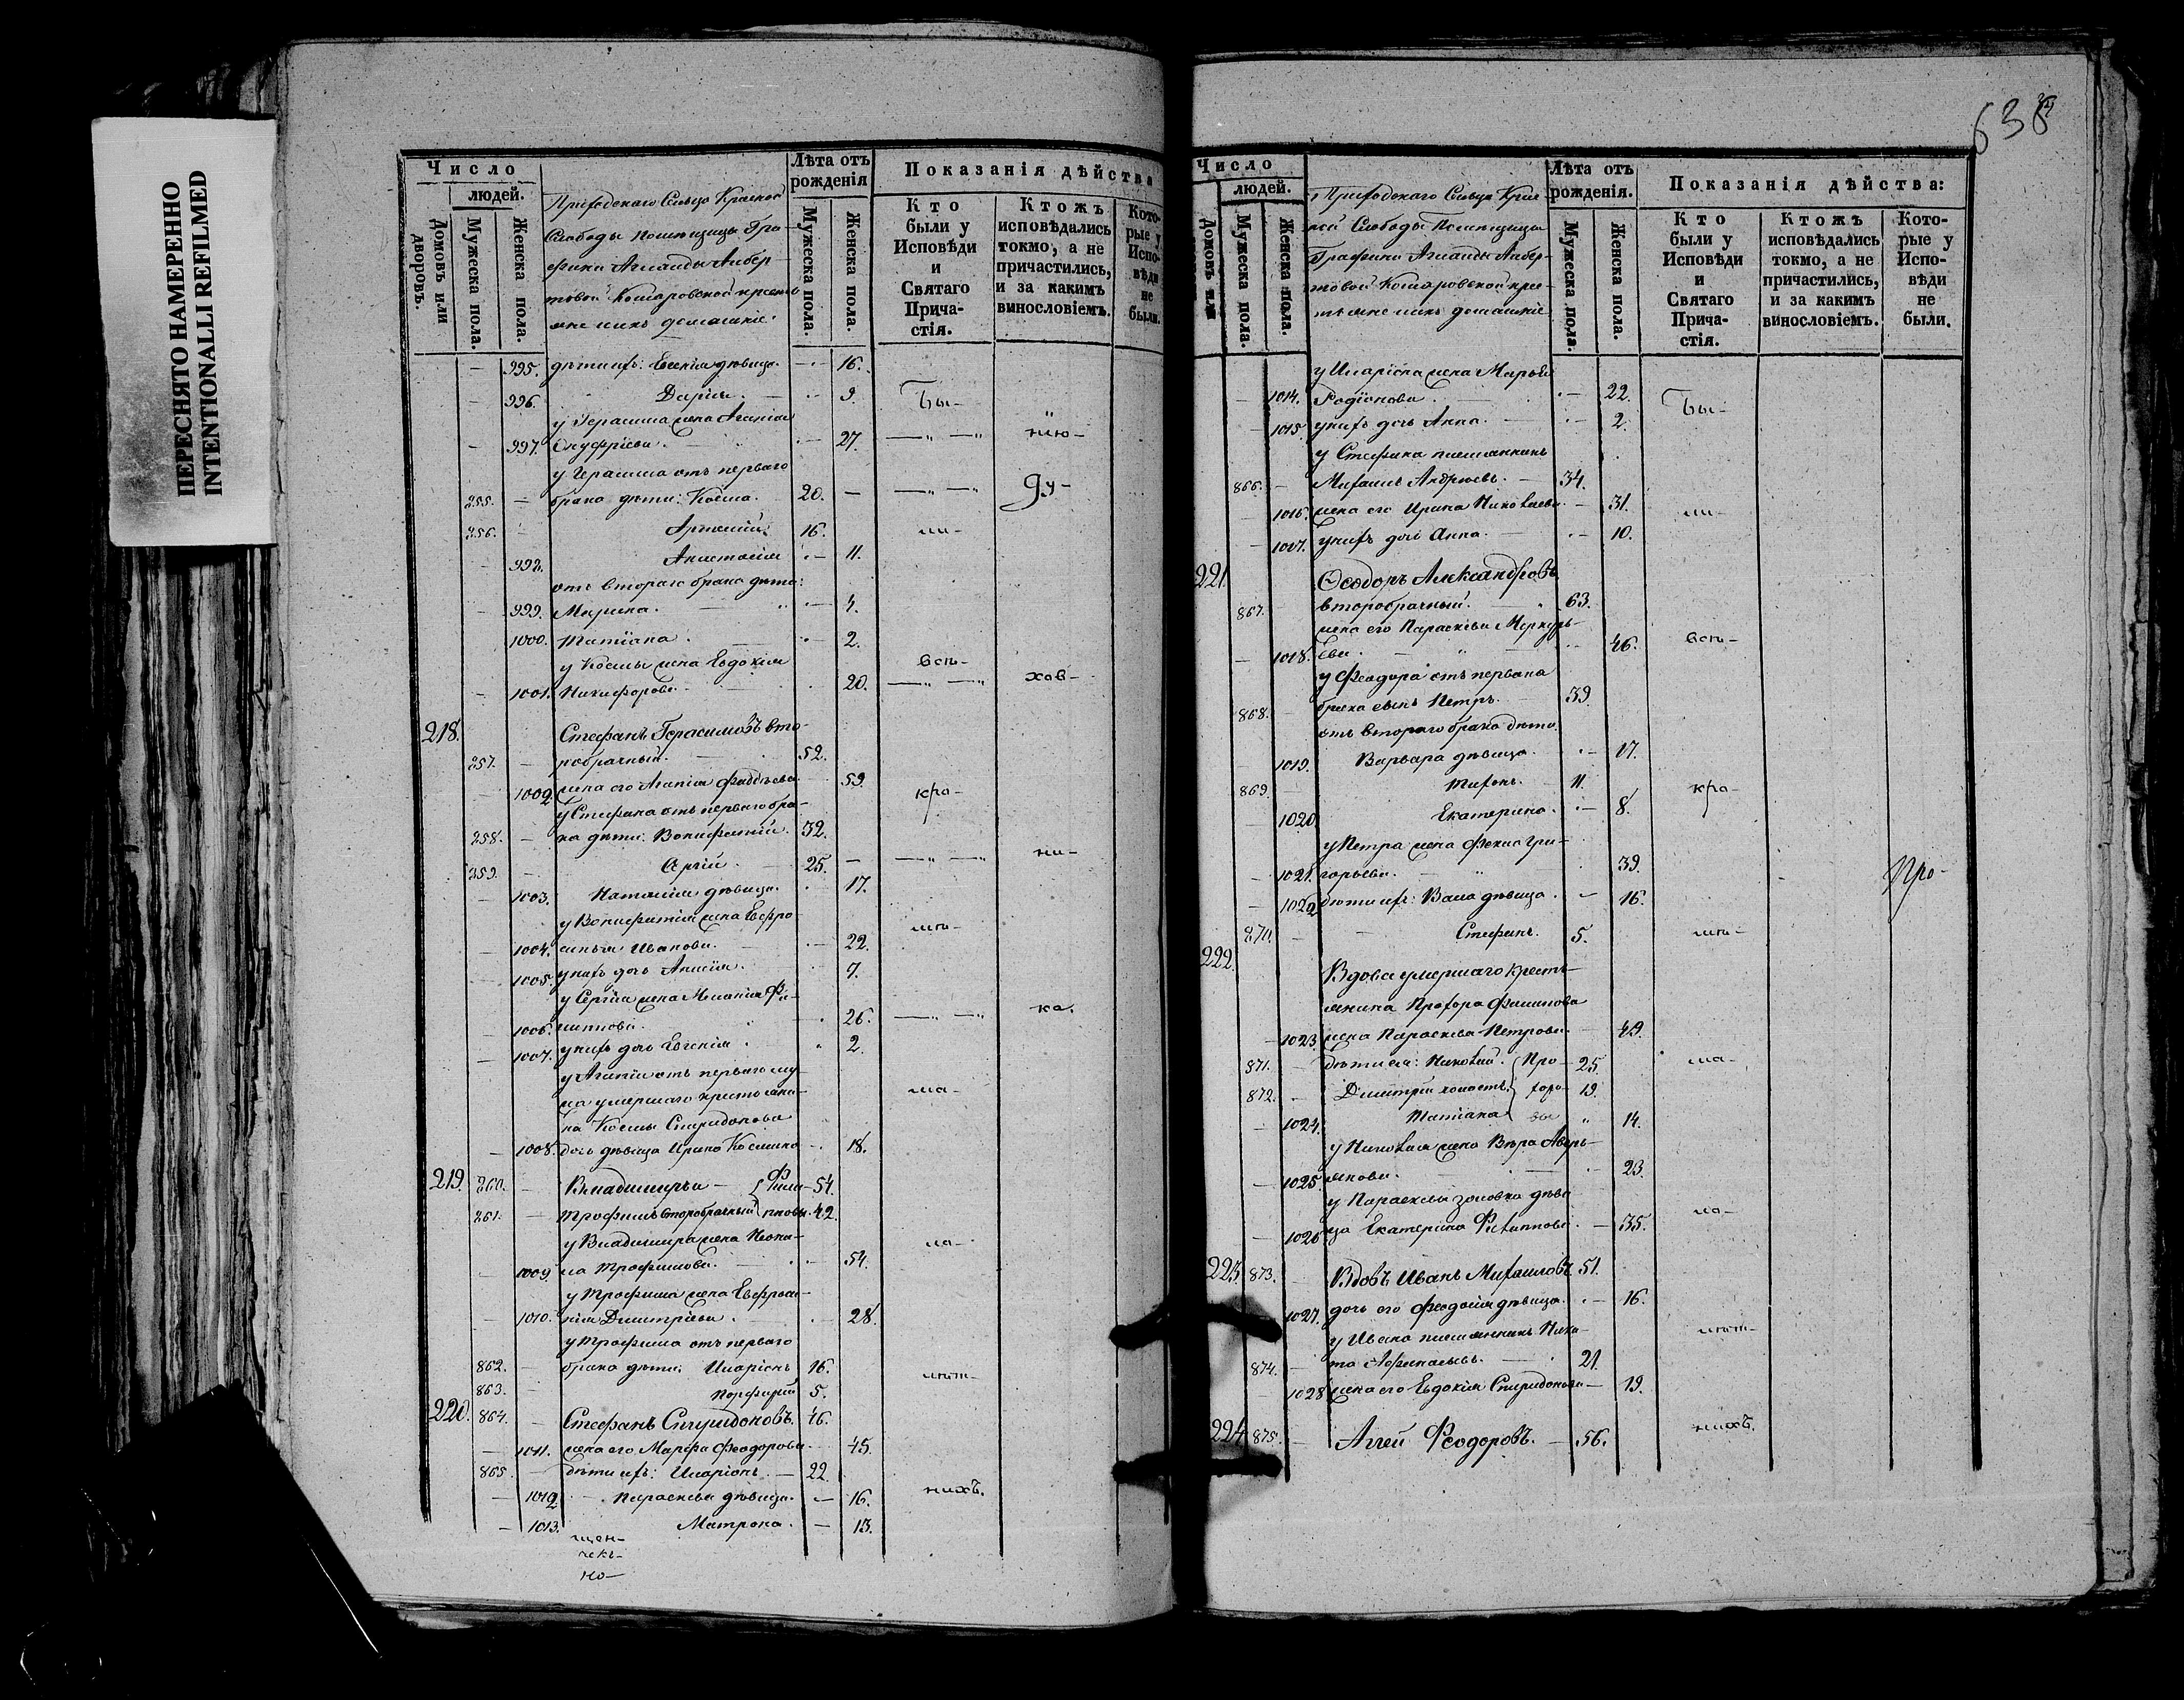 ПЕРЕСНЯТО НАМЕРЕННО
INTENTIONALLI REFILMED
Число
людей.
Домовъ или дворовъ.
Мужеска пола.
Женска пола.
Приходскаго Сельца Красной
Слободы Помѣщицы Гра-
фини
Комаровской кресть-
яне и ихъ домашніе.
Лѣта отъ рожденія
Мужеска пола.
Женска пола.
Показанія дѣйства
Кто были у Исповѣди и Святаго Прича-стія.
Ктожъ исповѣдались токмо, а не причастились, и за какимъ винословіемъ.
Кото-рые у Испо-вѣди не были.
995. дѣти ихъ: Евгенія дѣвица. 16.
996. Дарія. 9. Бы-
у Герасима жена Агапія
997. Онуфріева. 27. нію-
у Герасима отъ перваго
855. брака дѣти: Косма. 20. ду-
856. Артемій 16. ли-
998. Анастасія 11.
отъ втораго брака дѣти:
999. Марина. 4.
1000. Татіана. 2.
у Космы жена Евдокія всѣ-
1001. Никифорова 20. хов-
218.
Стефанъ Герасимовъ вто-
857. робрачный. 52.
1002 жена его Агапія Фаддѣева 59. кро-
у Стефана отъ перваго бра-
858. ка дѣти: Вонифатій. 32.
859. Сергій. 25. ни-
1003. Наталія дѣвица. 17.
у Вонифатія жена Евфро-
1004. синья Иванова. 22. мѣ-
1005. у нихъ дочь Анисія. 7.
у Сергія жена Меланія Фи-
1006. липпова. 26. ка.
1007. у нихъ дочь Евгенія 2.
у Агапіи отъ перваго му-
жа умершаго крестьяни- ма-
на Космы Спиридонова
1008. дочь дѣвица Ирина Космина 18.
219. 860. Владимиръ { Фили- 54.
861. Трофимъ второбрачный } пповы 42.
у Владимира жена Неони- ло-
1009. ла Трофимова. 54.
у Трофима жена Евфроси-
1010. нія Димитріева. 28.
у Трофима отъ перваго
862. брака дѣти: Иларіонъ 16. лѣт-
863. Порфирій 5.
220. 864. Стефанъ Спиридоновъ. 46.
1011. жена его Марфа Феодорова 45.
865. дѣти ихъ: Иларіонъ 22.
1012 Параскева дѣвица. 16. нихъ.
1013. Матрона. 13.
щен-
чекъ-
но-
638
Число
людей.
Домовъ или
Мужеска пола.
Женска пола.
Приходскаго Сельца Крас-
ной Слободы Помѣщицы
Графини
Комаровской кре-
стьяне и ихъ домашніе
Лѣта отъ рожденія.
Мужеска пола.
Женска пола.
Показанія дѣйства:
Кто были у Исповѣди и Святаго Прича-стія.
Ктожъ исповѣдались токмо, а не причастились, и за какимъ винословіемъ.
Кото-рые у Испо-вѣди не были.
у Иларіона жена Марья
1014. Родіонова 22. Бы-
1015. у нихъ дочь Анна. 2.
у Стефана племянникъ
866. Михаилъ Андреевъ. 34.
1016. жена его Ирина Николаева 31. ли-
1017. у нихъ дочь Анна. 10.
221. Ѳеодоръ Александровъ
867. второбрачный. 63.
жена его Параскева Меркурь-
1018. ева. 46. всѣ-
у Феодора отъ перваго
868. брака сынъ Петръ. 39
отъ втораго брака дѣти
1019. Варвара дѣвица. 17.
869. Тихонъ. 11. кро-
1020 Екатерина. 8.
у Петра жена Фекла Гри-
1021. горьева. 39. Про-
1022 дѣти ихъ: дѣвица. 16.
870. Стефанъ. 5. мѣ-
222.
Вдова умершаго кресть-
янина Прохора Филипова
1023. жена Параскева Петрова. 49.
871. дѣти ея: Николай { Про- 25. ма-
872. Димитрій холостъ } хоро- 19.
1024. Татіана вы 14.
у Николая жена Вѣра Аверь-
1025 янова. 23
у Параскевы золовка дѣви ло-
1026 ца Екатерина Филиппова 35.
223 873. Вдовъ Иванъ Михаиловъ 51.
1027. дочь его Феодосія дѣвица. 16.
у Ивана племянникъ Ники- лѣт-
874. та Афанасьевъ. 21.
1028 жена его Евдокія Спиридонова 19.
224 875. Аггей Феодоровъ. 56. нихъ.